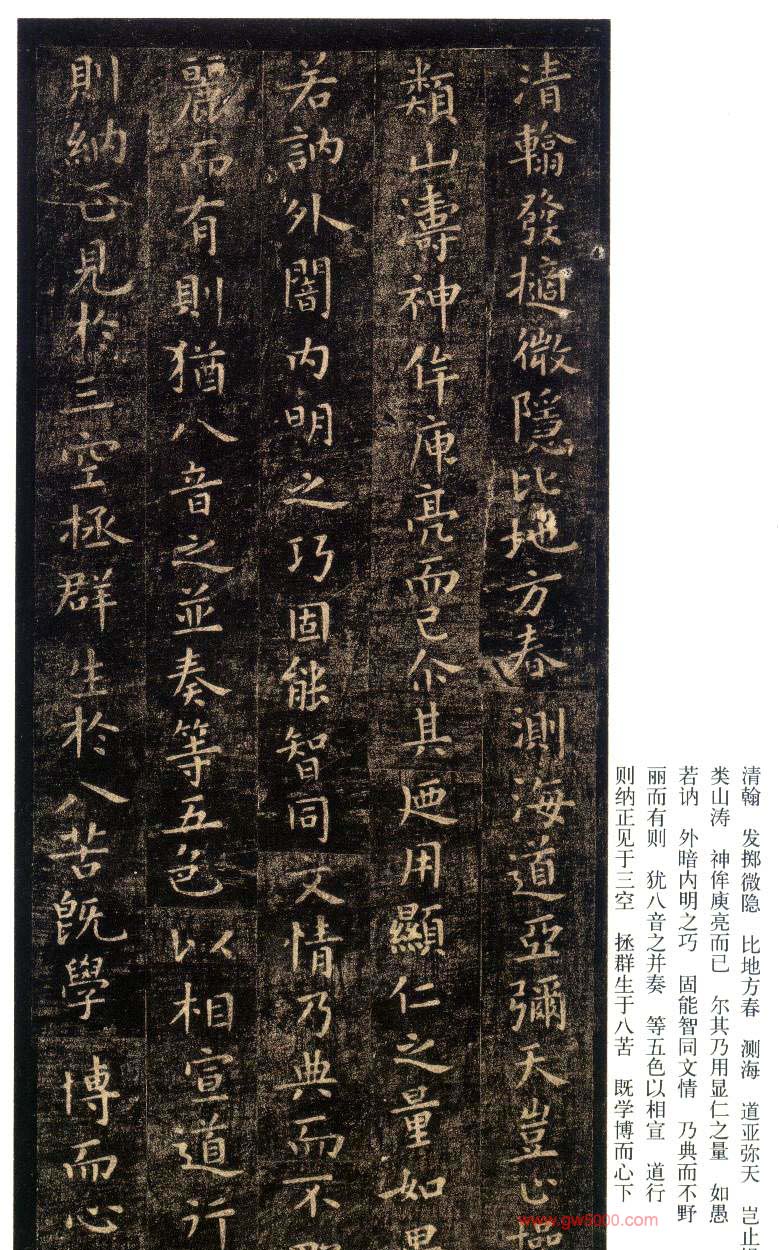 清翰發擿微隱比地方春測海道亞彌天豈止
類山濤神侔庾亮而已尒其迺用顯仁之量如
若訥外闇内明之巧固能智同文情乃典而不
麗而有則猶八音之並奏等五色以相宣道行
則納正見於三空拯群生於八苦既學博而心
清翰 发掷微隐 比地方春 测海 道亚弥天 岂止
类山涛 神侔庾亮而已 尔其乃用显仁之量 如愚
若讷 外暗内明之巧 固能智同文情 乃典而不野
丽而有则 犹八音之并奏 等五色以相宣 道行
则纳正见于三空 拯群生于八苦 既学博而心下
www.gw5000.com